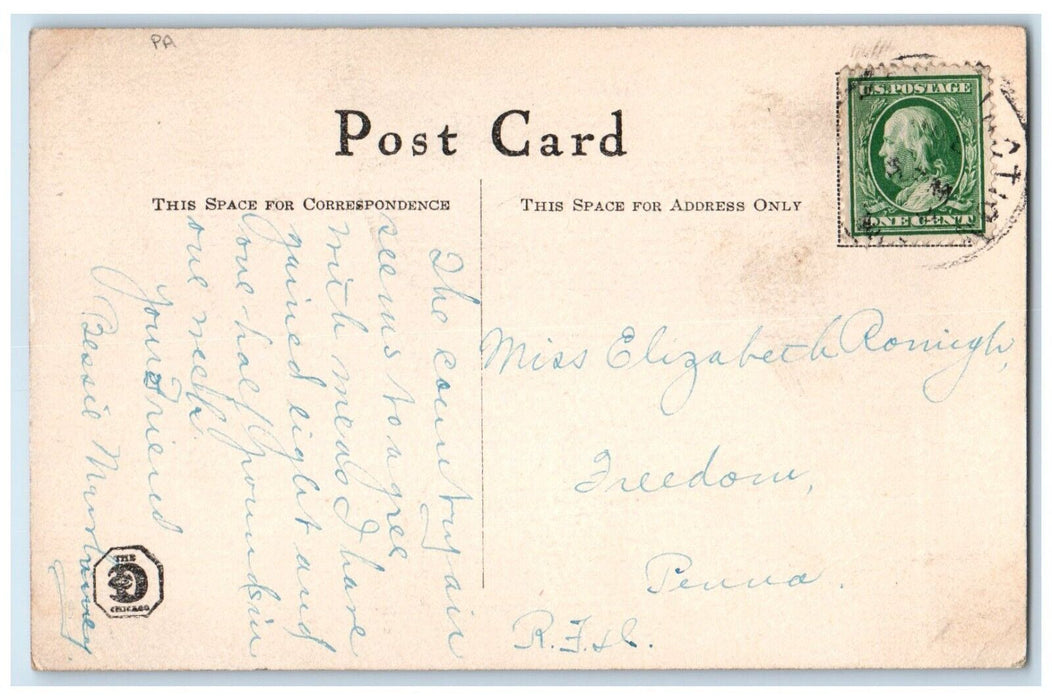 PA
Post Card
THIS SPACE FOR CORRESPONDENCE
THIS SPACE FOR ADDRESS ONLY
U.S. POSTAGE
ONE CENT
The country air
seems to agree
with me as I have
gained eight and
one-half pounds in
one week.
Your Friend
Bessie
Miss Elizabeth Romigh,
Freedom,
Penna.
R.F.D.
THE
CHICAGO